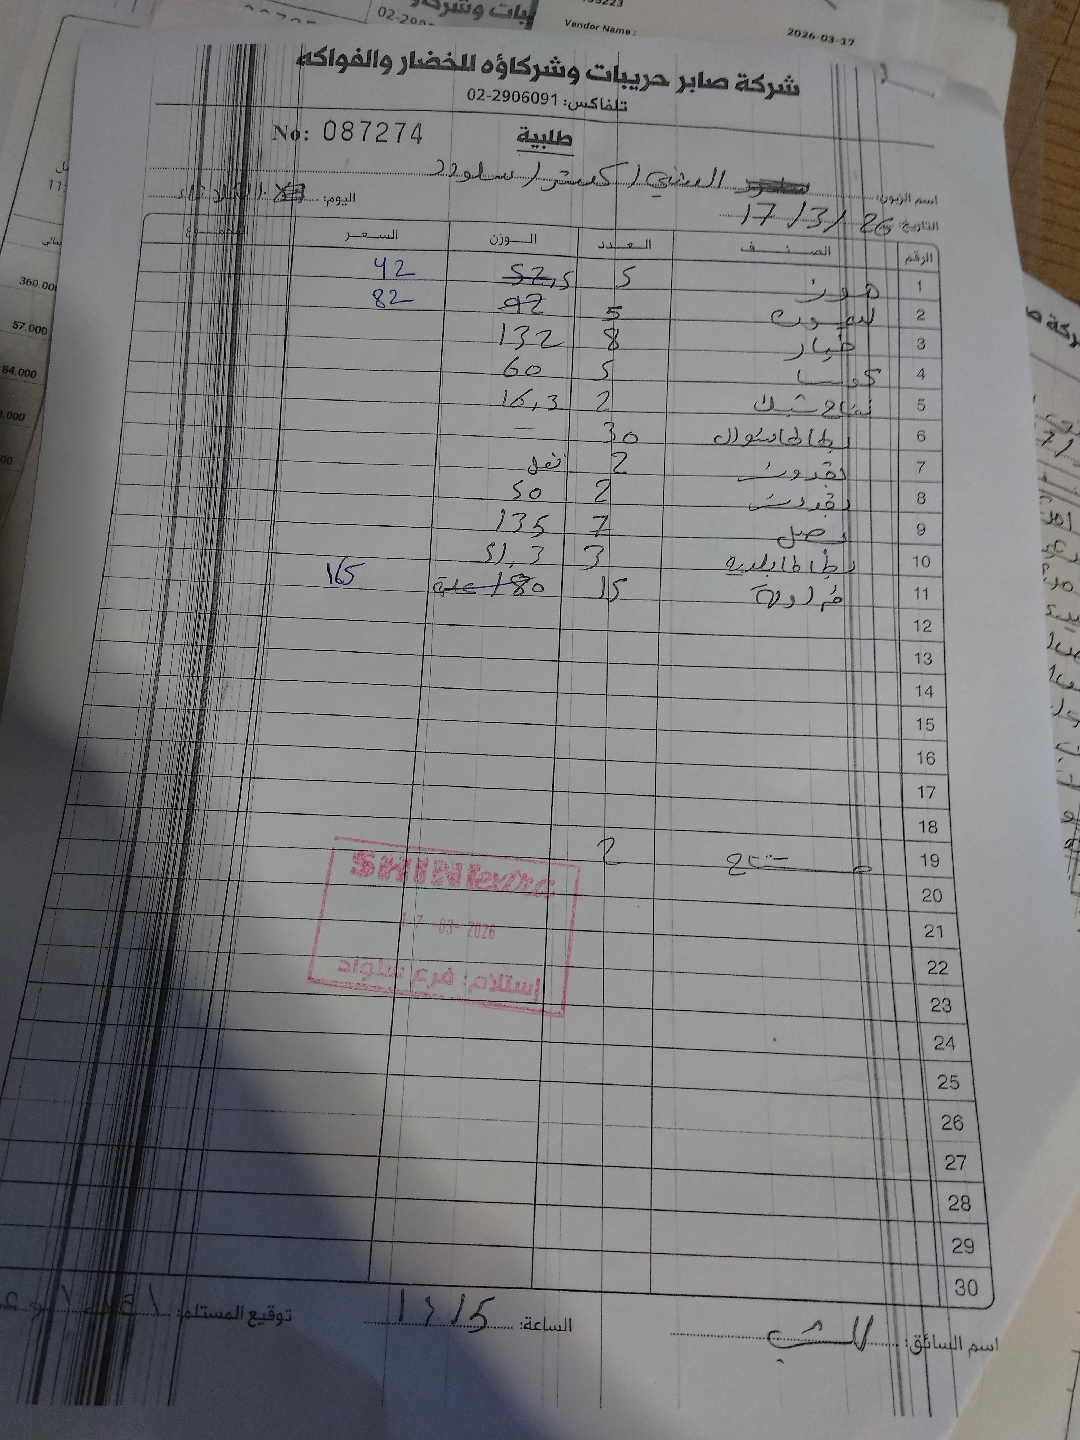 55223
02-290
بيات وشركاؤ
Vendor Name :
2026-03-17
شركة صابر حريبات وشركاؤه للخضار والفواكه
تلفاكس: 02-2906091
طلبية
No: 087274
اسم الزبون: السني / اكسترا / سلواد
التاريخ: 17/3/26
اليوم: الثلاثاء
الرقم الصنف العدد الوزن السعر المجموع
1 موز 5 52,5 42
2 ليمون 5 92 82
3 خيار 8 132
4 كوسا 5 60
5 تفاح شبك 2 16,3
6 بطاطا شوال 30 -
7 بقدونس 2 نقل
8 بقدونس 2 50
9 بصل 7 135
10 بطاطا بلديه 3 51,3
11 فراولة 15 180 165
12
13
14
15
16
17
18
19 2
20
21
22
23
24
25
26
27
28
29
30
SHINI extra
17-03-2026
إستلام: فرع سلواد
اسم السائق:
الساعة:
توقيع المستلم:
360.00
57.000
84.000